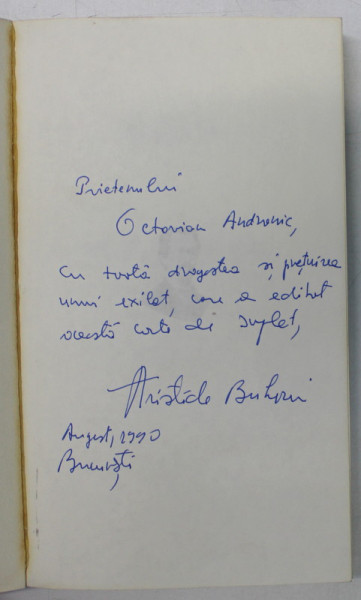 Prietenului
Octavian Andronic,
cu toată dragostea și prețuirea
unui exilat, care a editat
această carte de suflet,
Aristide Buhoiu
August, 1990
București